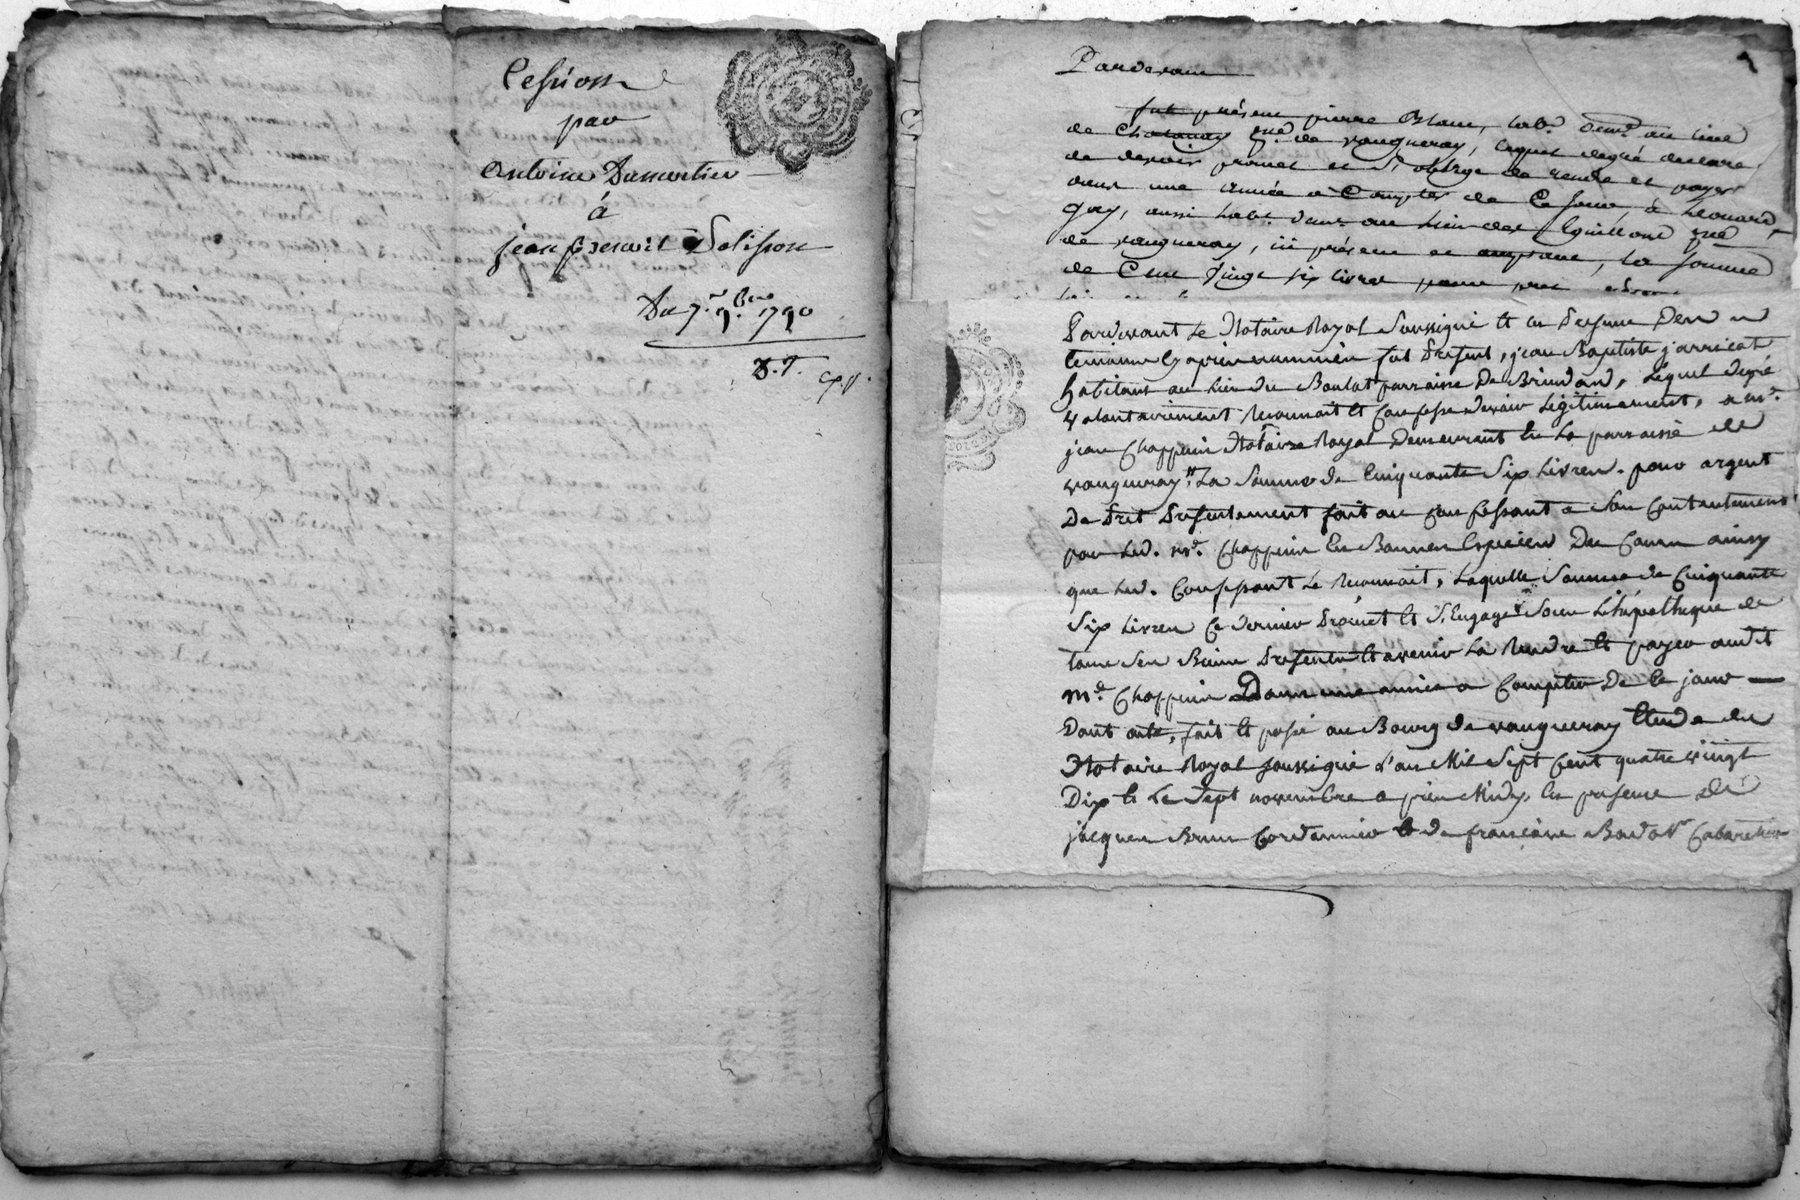 Cession
par
Antoine Dumortier
à
jean Benoit Dolisson
Du 7.e 9.bre 1790
Pardevant
fut présent pierre Blanc, lab.r dem.t au lieu
de Chatanay p.sse de vaugneray, lequel degré declare
de devoir promet et s'oblige de rendre et payer
dans une année a Compter de Ce jour, à Léonard
Guy, aussi hab.t dem.t au lieu des Eguillons p.sse
de vaugneray, ici présent et acceptant, la somme
de Cent vingt six livres pour pret
Pardevant Le Notaire Royal Soussigné Et En Presence Des
temoins Cy aprés nommés fut Present, jean Baptiste jarricot
habitant au Lieu du Boulat parroisse De Brindas, Lequel degré
volontairement Reconnoit Et Confesse devoir Légitimement, a m.e
jean Chappuis Notaire Royal Demeurant En La parroisse de
vaugneray La Somme de Cinquante Six Livres. pour argent
De Prêt Presentement fait au Confessant a Son Contentement
par Led. m.e Chappuis En Bonnes Especes Du Cours ainsy
que Led. Confessant Le Reconnoit, Laquelle Somme de Cinquante
Six Livres Ce dernier Promet Et S'Engage Sous L'hépotheque de
tous Ses Biens Presents Et avenir La Rendre Et payer audit
m.e Chappuis Dans une année a Compter De Ce jour
Dont acte, fait Et passé au Bourg de vaugneray Etude du
Notaire Royal soussigné L'an Mil Sept Cent quatre vingt
Dix Et Le Sept novembre a prés Midy, En presence De
jacques Brun Cordonnier Et de françois Cabaretier